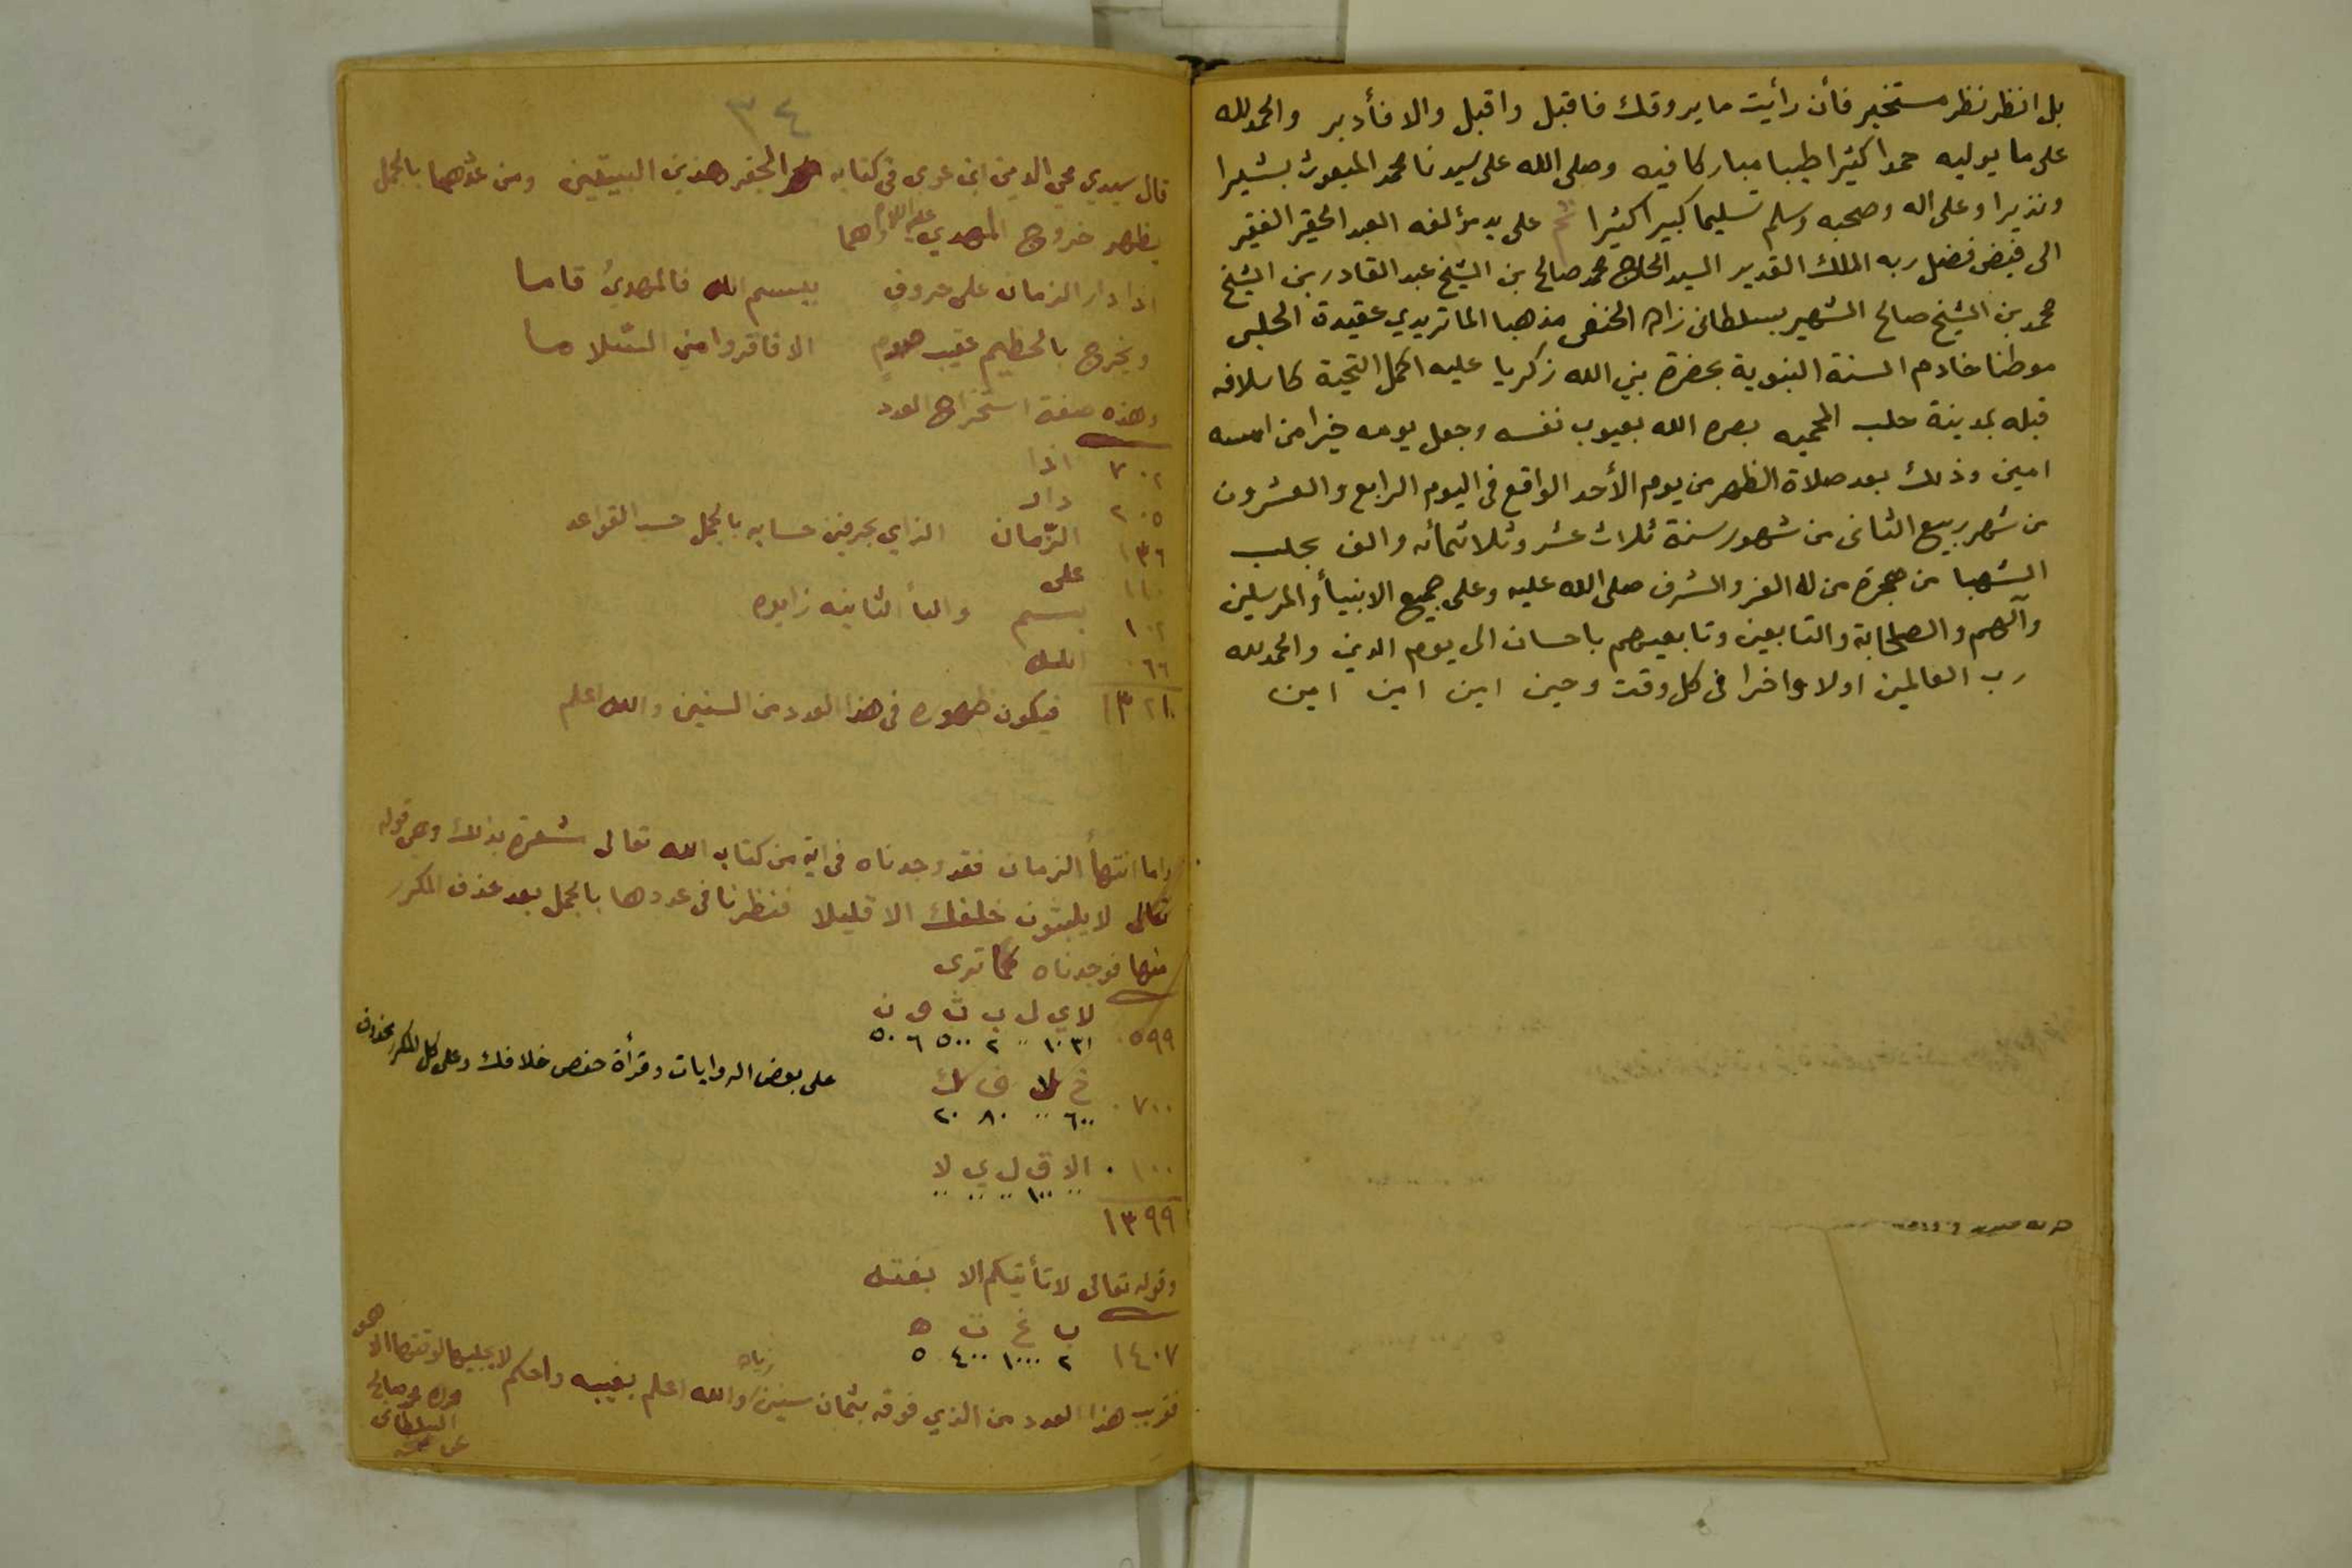 بل انظر نظر مستخبر فأن رأيت ما يروقك فاقبل واقبل والا فأدبر والحمد لله
على ما يوليه حمدا كثيرا طيبا مباركا فيه وصلى الله على سيدنا محمد المبعوث بشيرا
ونذيرا وعلى اله وصحبه وسلم تسليما كبيرا كثيرا تم على يد مؤلفه العبد الحقير الفقير
الى فيض فضل ربه الملك القدير السيد الحاج محمد صالح بن الشيخ عبد القادر بن الشيخ
محمد بن الشيخ صالح الشهير بسلطانى زاده الحنفى مذهبا الماتريدي عقيدة الحلبى
موطنا خادم السنة النبوية بحضرة نبي الله زكريا عليه اكمل التحية كاسلافه
قبله بمدينة حلب المحميه بصره الله بعيوب نفسه وجعل يومه خيرا من امسه
امين وذلك بعد صلاة الظهر من يوم الأحد الواقع فى اليوم الرابع والعشرون
من شهر ربيع الثانى من شهور سنة ثلاث عشر وثلاثمائه والف بحلب
الشهبا من هجرة من له العز والشرف صلى الله عليه وعلى جميع الانبيأ والمرسلين
وآلهم والصحابة والتابعين وتابعيهم باحسان الى يوم الدين والحمد لله
رب العالمين اولا واخرا فى كل وقت وحين امين امين امين
٣٤
قال سيدي محي الدين ابن عربى فى كتابه الجفر هذين البيتين ومن عدهما بالجمل
يظهر خروج المهدي عليه السلام وهما
اذا دار الزمان على حروف ببسم الله فالمهدىُ قاما
ويخرج بالحطيم عقيب صوم الا فاقروا مني السّلاما
وهذه صفة استخراج العدد
٧٠٢ اذا
٢٠٥ دار
١٣٦ الزّمان الزاي بحرفين حسابه بالجمل حسب القواعد
١١٠ على
١٠٢ بسم والبأ الثانيه زايده
٦٦ الله
١٣٢١ فيكون ظهوره فى هذا العدد من السنين والله اعلم
واما انتهأ الزمان فقد وجدناه فى اية من كتاب الله تعالى مشعرة بذلك وهى قوله
تعالى لا يلبثون خلفك الا قليلا فنظرنا فى عددها بالجمل بعد حذف المكرر
منها فوجدناه كما ترى
لا ي ل ب ث و ن
٥٩٩ ٣١ ١٠ ٠٠ ٢ ٥٠٠ ٦ ٥٠
خ ل ف ك على بعض الروايات وقرأة حفص خلافك وعلى كل المكرر محذوف
٧٠٠ ٦٠٠ ٠٠ ٨٠ ٢٠
١٠٠ الا ق ل ي لا
٠٠ ١٠٠ ٠٠ ٠٠ ٠٠
١٣٩٩
وقوله تعالى لا تأتيكم الا بغتة
ب غ ت ه
١٤٠٧ ٢ ١٠٠٠ ٤٠٠ ٥
فقرب هذا العدد من الذي فوقه بثمان سنين زياده والله اعلم بغيبه واحكم لا يجليها لوقتها الا هو
حرره محمد صالح
السلطانى
عفى عنه